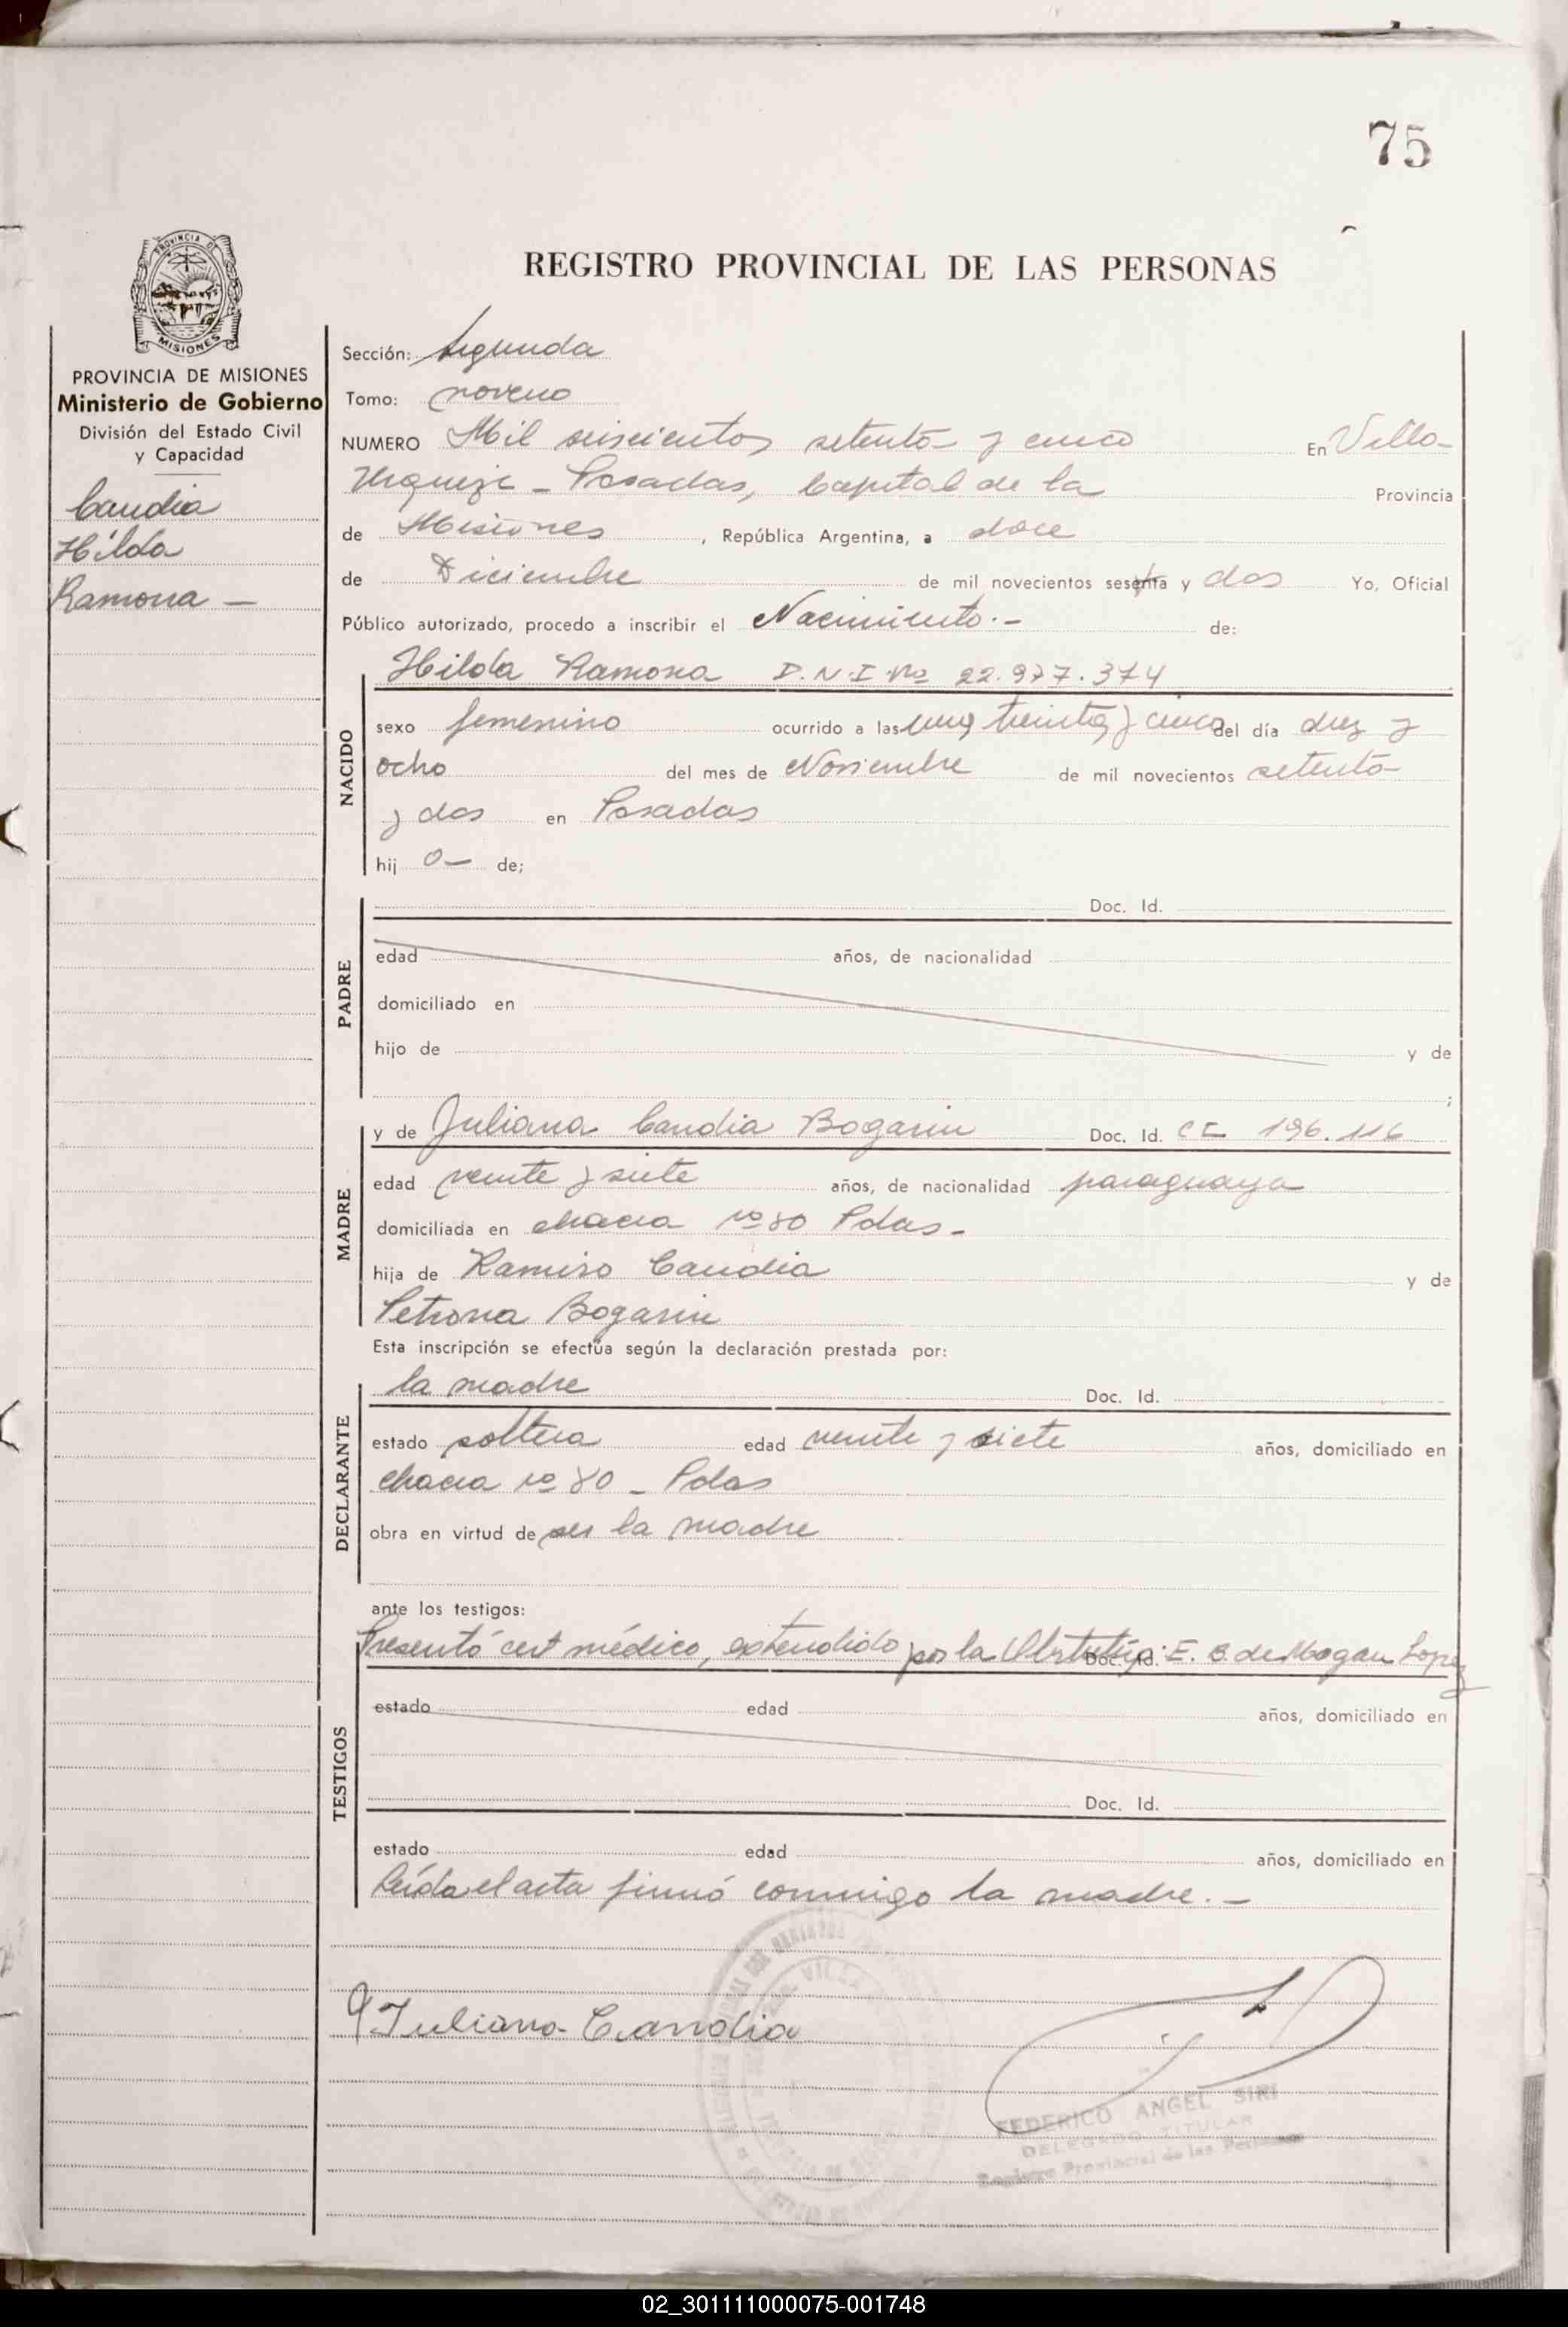 75
REGISTRO PROVINCIAL DE LAS PERSONAS
PROVINCIA DE MISIONES
MISIONES
PROVINCIA DE MISIONES
Ministerio de Gobierno
División del Estado Civil
y Capacidad
Candia
Hilda
Ramona —
Sección: Segunda
Tomo: noveno
NUMERO Mil seiscientos setenta y cinco En Villa
Urquiza - Posadas, Capital de la Provincia
de Misiones, República Argentina, a doce
de Diciembre de mil novecientos sesenta y dos Yo, Oficial
Público autorizado, procedo a inscribir el Nacimiento.- de:
NACIDO
Hilda Ramona D.N.I. Nº 22.977.374
sexo femenino ocurrido a las una, treinta y cinco del día diez y
ocho del mes de Noviembre de mil novecientos setenta
y dos en Posadas
hij a- de;
PADRE
Doc. Id.
edad años, de nacionalidad
domiciliado en
hijo de y de
;
MADRE
y de Juliana Candia Bogarin Doc. Id. CI 196.116
edad veinte y siete años, de nacionalidad paraguaya
domiciliada en chacra nº 80 Pdas-
hija de Ramiro Candia y de
Petrona Bogarin
Esta inscripción se efectúa según la declaración prestada por:
DECLARANTE
la madre Doc. Id.
estado soltera edad veinte y siete años, domiciliado en
chacra nº 80 - Pdas
obra en virtud de ser la madre
ante los testigos:
TESTIGOS
Presentó cert médico, extendido por la Doc. Id. E. B. de Mogan Lopez
estado edad años, domiciliado en
Doc. Id.
estado edad años, domiciliado en
Leída el acta firmó conmigo la madre.-
Juliana Candia
FEDERICO ANGEL SIRI
DELEGADO TITULAR
Registro Provincial de las Personas
02_301111000075-001748